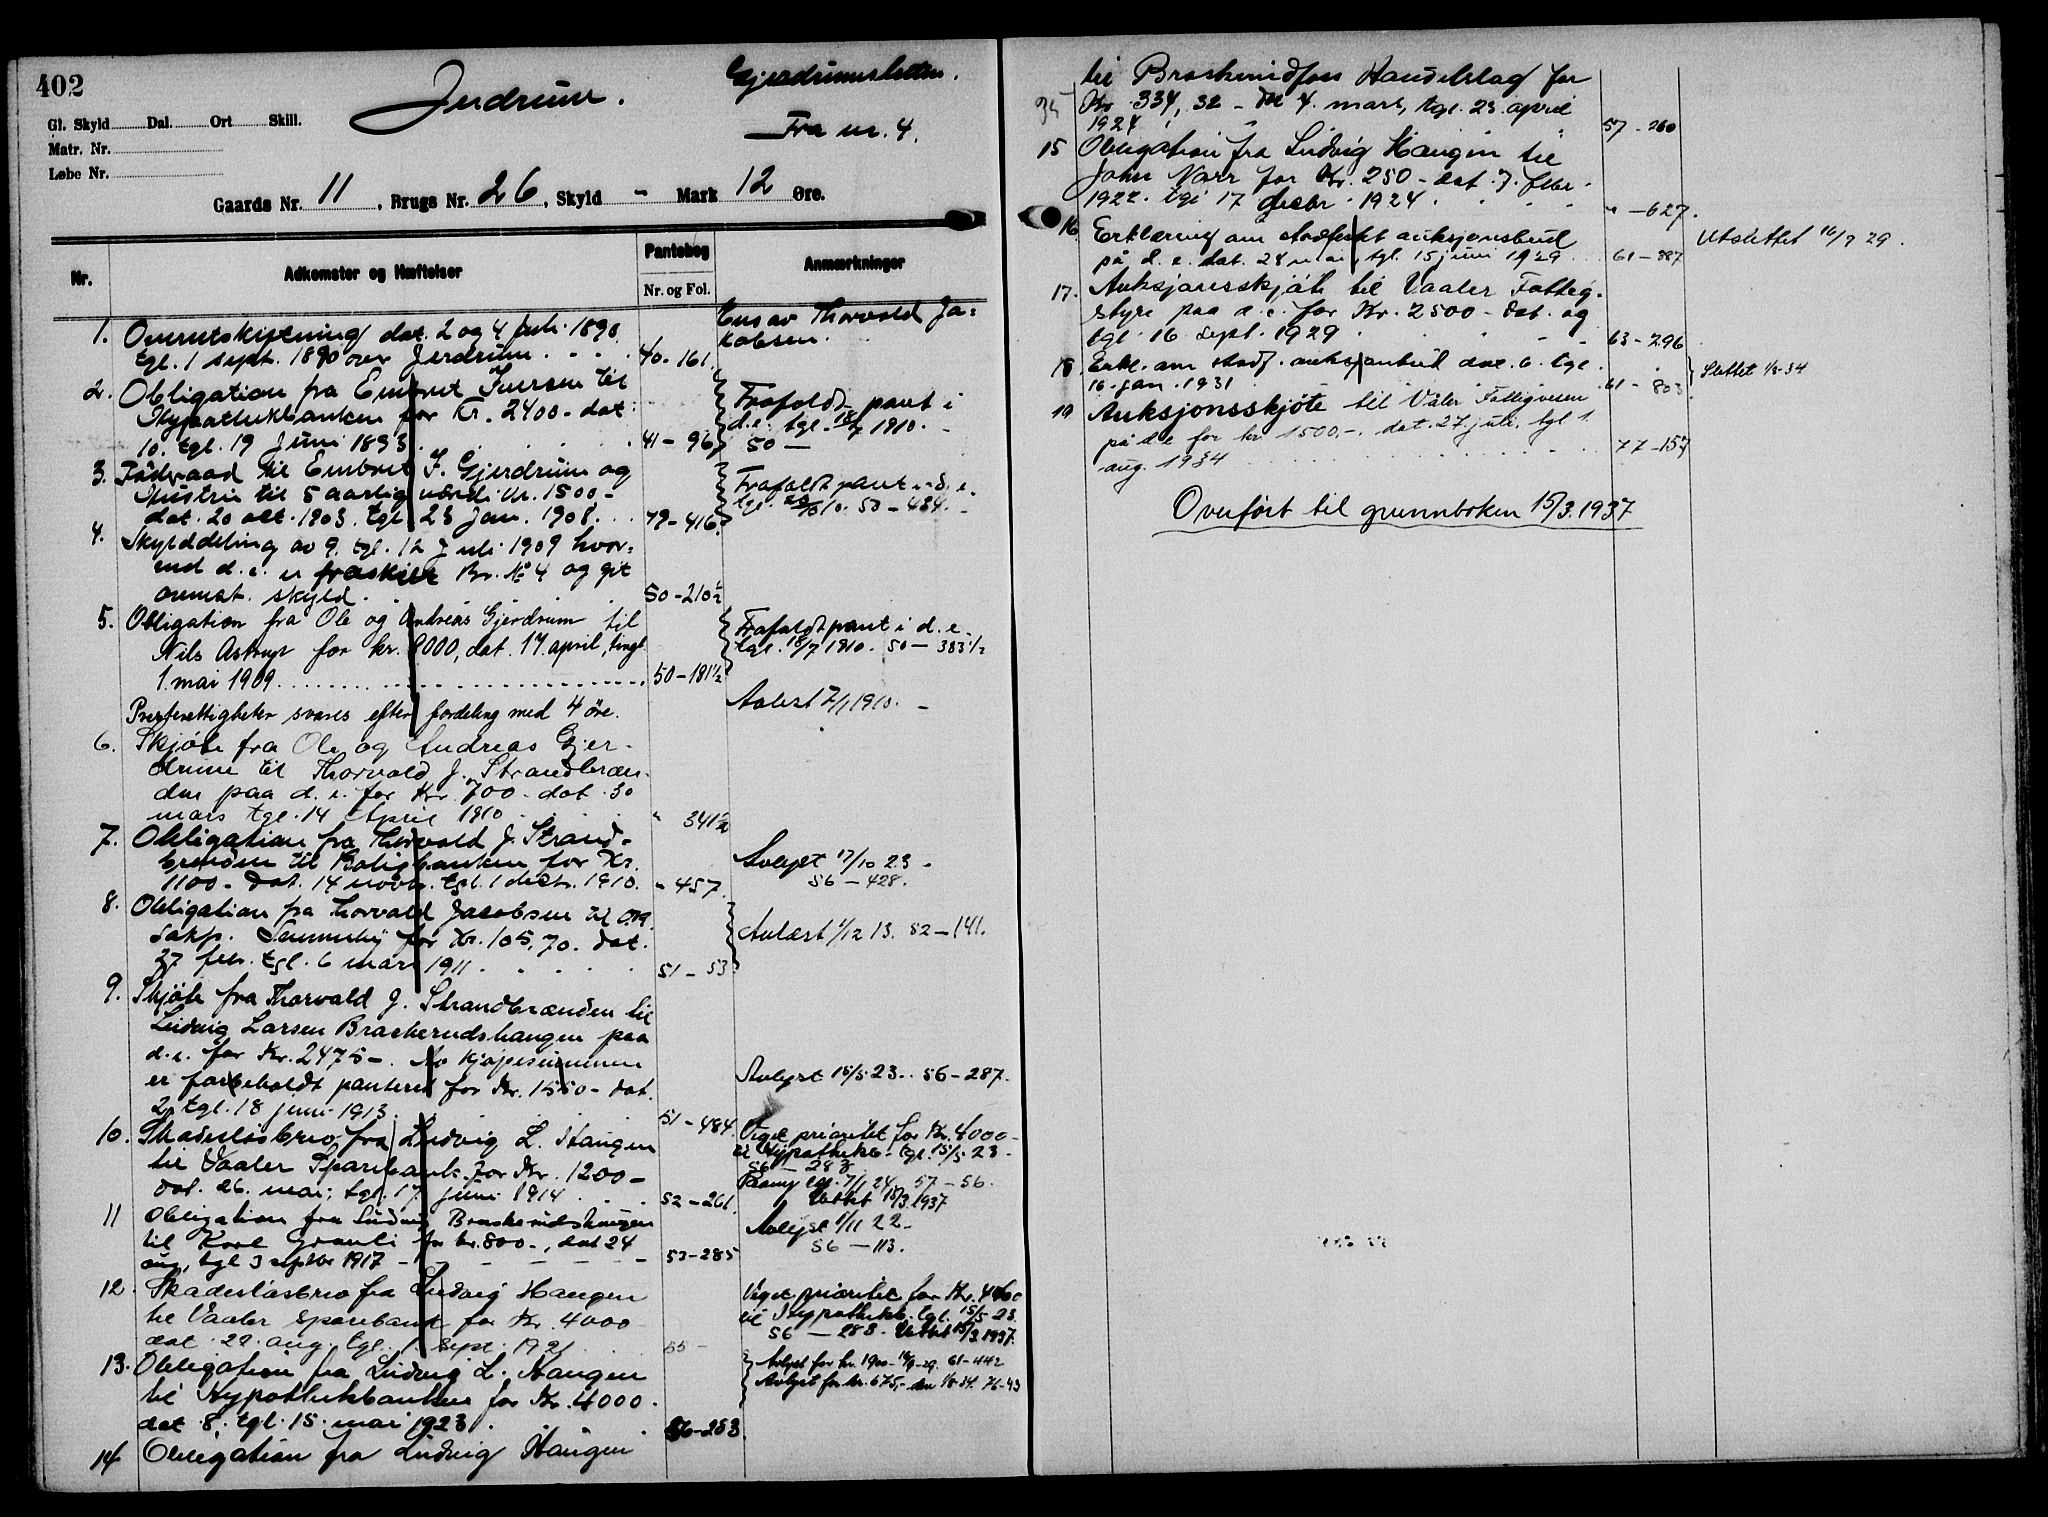 402
Jerdrum.
Gjerdrumsletten.
Fra nr. 4.
Gl. Skyld Dal. Ort Skill.
Matr. Nr.
Løbe Nr.
Gaards Nr. 11, Brugs Nr. 26, Skyld - Mark 12 Øre.
Nr. Adkomster og Hæftelser Pantebog Anmærkninger
Nr. og Fol.
Eies av Thorvald Ja=
kobsen.
1. Omrutskiftning dat. 2 og 4 juli 1890
tgl. 1 sept. 1890 over Jerdrum 40-161
2. Obligation fra Embret Iversen til
Hypothekbanken for Kr. 2400- dat.
10. tgl. 19 juni 1893 41-96
Frafaldt pant i
d.e. tgl. 18/7 1910.
50 —
3. Föderaad til Embret I. Gjerdrum og
Hustru til 5 aarlig værdi kr. 1500-
dat. 20 okt. 1903. tgl. 23 jan. 1908. 49-416
Frafaldt pant i d.e.
tgl. 10. 50-434.
4. Skylddeling av 9. tgl. 12 Juli 1909 hvor=
ved d.e. er fraskilt Br. No 4 og git
anmat. skyld. 50-210½
5. Obligation fra Ole og Andreas Gjerdrum til
Nils Astrup for kr. 8000, dat. 17. april, tingl.
1. mai 1909 50-181½
Frafaldt pant i d.e.
tgl. 18/7 1910. 50-383½
Presterettigheter svares efter fordeling med 4 øre.
Avløst 7/1 1910.
6. Skjöte fra Ole og Andreas Gjer-
drum til Thorvald J. Strandbræn-
den paa d.e. for Kr. 700- dat. 30
mars tgl. 14 April 1910 " 341½
7. Obligation fra Thorvald J. Strand-
brenden til Boligbanken for Kr.
1100- dat. 14 novb. tgl. 1 decbr. 1910. " 457
Avlyst 17/10 23-
56-428.
8. Obligation fra Thorvald Jacobsen til O.r.sg.
Sakf. for Kr. 105,70. dat.
27 feb. tgl. 6 mars 1911. 51-53
Avlæst 1/12 13. 52-141.
9. Skjöte fra Thorvald J. Strandbrænden til
Ludvig Larsen Braskerudshaugen paa
d.e. for Kr. 2475-. Av kjöpesummen
er forbeholdt panteret for Kr. 1550- dat.
2. tgl. 18 juni 1913. 51-484.
Avlyst 15/5 23. 56-287.
10. Skadeslösbrev fra Ludvig L. Haugen
til Vaaler Sparebank for Kr. 1200-
dat. 26. mai, tgl. 17 juni 1914 52-261.
Veget prioritet for Kr. 4000-
til Hypothekb. tgl. 15/5 23-
56-283
Paany tgl. 7/1 24 57-56.
Slettet 15/3 1937
11 Obligation fra Ludvig Braskerudshaugen
til Karl Granli for kr. 800-, dat 24
aug, tgl 3 septbr 1917 53-285
Avlyst 1/11 22-
56-113.
12. Skadeslösbrev fra Ludvig Haugen
til Vaaler Sparebank for Kr. 4000
dat. 22. aug. tgl. 1. sept. 1921 55-
Veget prioritet for Kr. 4000
til Hypothekb. tgl. 15/5 23.
56-283. Slettet 15/3 1937.
13. Obligation fra Ludvig L. Haugen
til Hypothekbanken for Kr. 4000-
dat. 8. tgl. 15. mai 1923. 56-283.
Avlyst for kr. 1900- 16/9-29. 61-442
Avlyst for kr. 675,- den 1/8-34. 76-43
14 Obligation fra Ludvig Haugen
til Braskeridfoss Handelslag for
Kr. 334,32- dat 4. mars, tgl. 23. april
1924 57-260
15 Obligation fra Ludvig Haugen til
John Norr for Kr. 250- dat. 7. febr.
1922. tgl 17 decbr. 1924. " -627.
16. Erklæring om stadfestet auksjonsbud
på d.e. dat. 28 mai, tgl. 15 juni 1929 61-887
Utslettet 16/9 29.
17. Auksjonsskjöte til Vaaler Fattig-
styre paa d.e. for Kr. 2500- dat. og
tgl. 16 sept. 1929 63-296
18. Erkl. om stadf. auksjonsbud dat. 6. tgl.
16. jan. 1931 61-803
Slettet 1/8-34
19 Auksjonsskjøte til Våler Fattigvesen
på d e for kr 1500,-. dat. 27 juli, tgl 1.
aug. 1934 77-157
Overført til grunnboken 15/3.1937